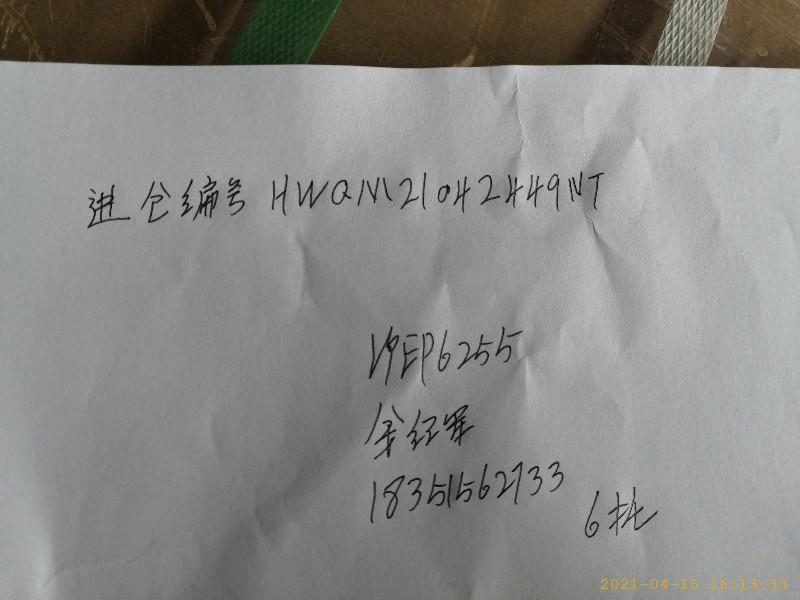 进仓编号 HWQM21042449NT
沪EP6255
金红军
18351562733
6托
2021-04-15 16:13:33